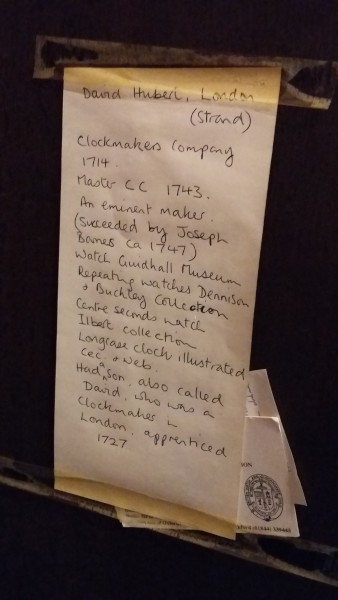 David Hubert, London
(Strand)
Clockmakers Company
1714.
Master C C 1743.
An eminent maker.
(Succeeded by Joseph
Barnes ca 1747)
Watch Guidhall Museum
Repeating watches Dennison
& Buckley Collection
Centre seconds watch
Ilbert collection
Longcase clock illustrated
Cec. & Web.
Had a son, also called
David, who was a
Clockmaker in
London. apprenticed
1727